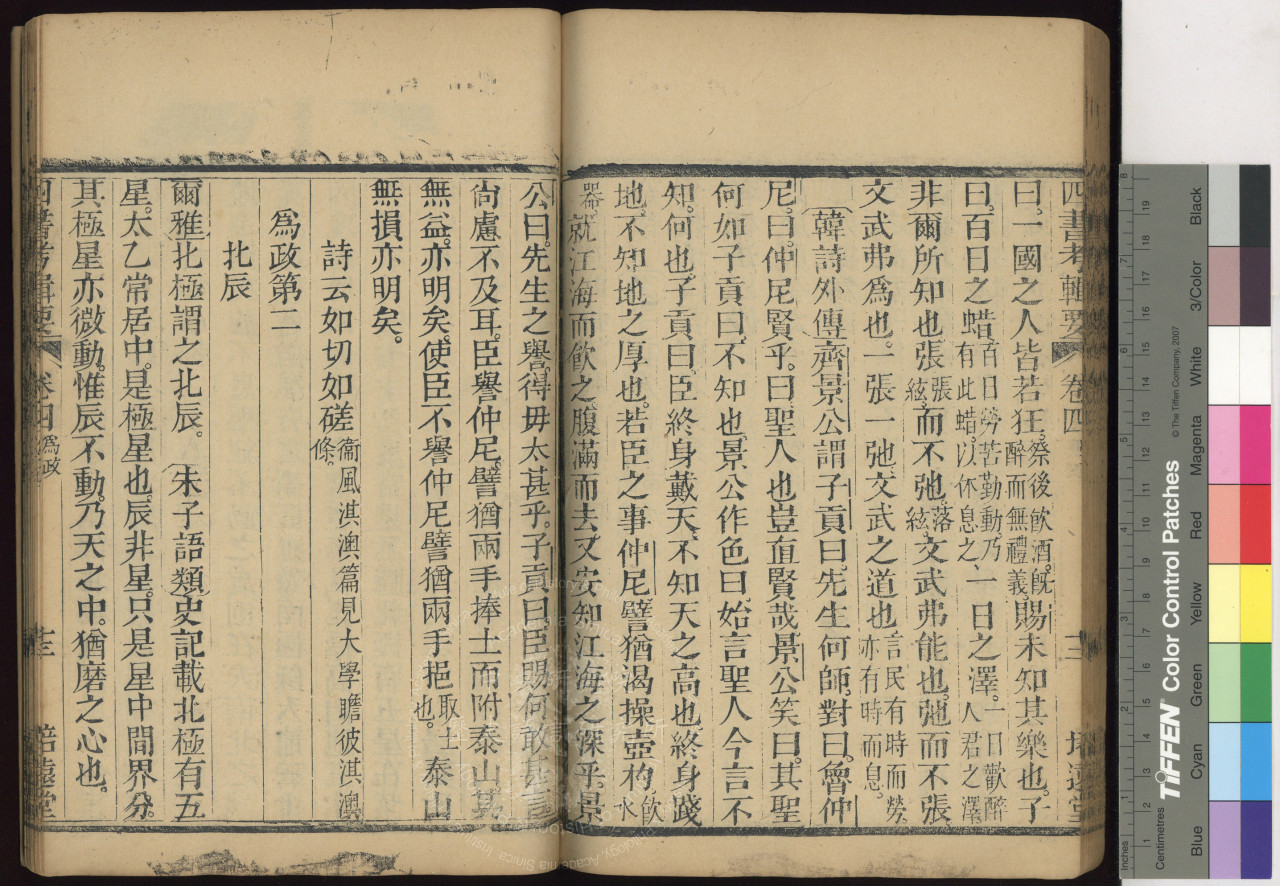 四書考輯要 卷四 十三 培遠堂
曰。一國之人皆若狂。祭後飲酒。既醉而無禮義。賜未知其樂也。子
曰。百日之蜡。百日勞苦勤動。乃有此蜡。以休息之。一日之澤。一日歡醉人君之澤
非爾所知也。張張絃。而不弛。落絃。文武弗能也。弛而不張
文武弗爲也。一張一弛。文武之道也言民有時而勞。亦有時而息。
韓詩外傳齊景公謂子貢曰。先生何師。對曰。魯仲
尼。曰。仲尼賢乎。曰聖人也豈直賢哉。景公笑曰。其聖
何如子貢曰。不知也。景公作色曰。始言聖人今言不
知。何也。子貢曰。臣終身戴天。不知天之高也。終身踐
地。不知地之厚也。若臣之事仲尼譬猶渴操壺杓飲水器
就江海而飲之。腹滿而去。又安知江海之深乎。景
公曰。先生之譽。得毋太甚乎。子貢曰臣賜何敢甚言。
尙慮不及耳。臣譽仲尼。譬猶兩手捧土而附泰山其
無益。亦明矣。使臣不譽仲尼譬猶兩手挹取土也。泰山
無損亦明矣。
詩云如切如磋衞風淇澳篇見大學瞻彼淇澳條。
爲政第二
北辰
爾雅北極謂之北辰。朱子語類史記載北極有五
星。太乙常居中。是極星也。辰非星。只是星中間界分。
其極星亦微動。惟辰不動。乃天之中。猶磨之心也。
四書考輯要 卷四 爲政 十三 培遠堂